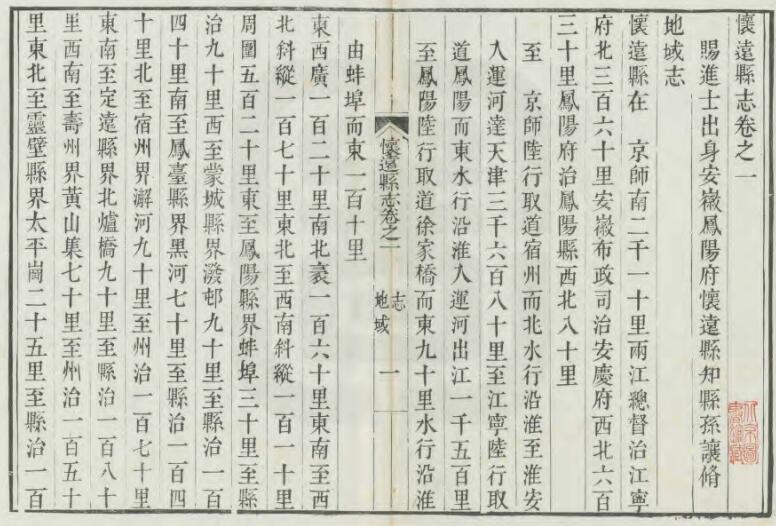 懷遠縣志卷之一
賜進士出身安徽鳳陽府懷遠縣知縣孫讓脩
地域志
懷遠縣在 京師南二千一十里兩江總督治江寧
府北三百六十里安徽布政司治安慶府西北六百
三十里鳳陽府治鳳陽縣西北八十里
至 京師陸行取道宿州而北水行沿淮至淮安
入運河達天津三千六百八十里至江寧陸行取
道鳳陽而東水行沿淮入運河出江一千五百里
至鳳陽陸行取道徐家橋而東九十里水行沿淮
懷遠縣志卷之一
地域志
一
由蚌埠而東一百十里
東西廣一百二十里南北袤一百六十里東南至西
北斜縱一百七十里東北至西南斜縱一百一十里
周圍五百二十里東至鳳陽縣界蚌埠三十里至縣
治九十里西至蒙城縣界潑邨九十里至縣治一百
四十里南至鳳臺縣界黑河七十里至縣治一百四
十里北至宿州界澥河九十里至州治一百七十里
東南至定遠縣界北爐橋九十里至縣治一百八十
里西南至壽州界黃山集七十里至州治一百五十
里東北至靈壁縣界太平崗二十五里至縣治一百